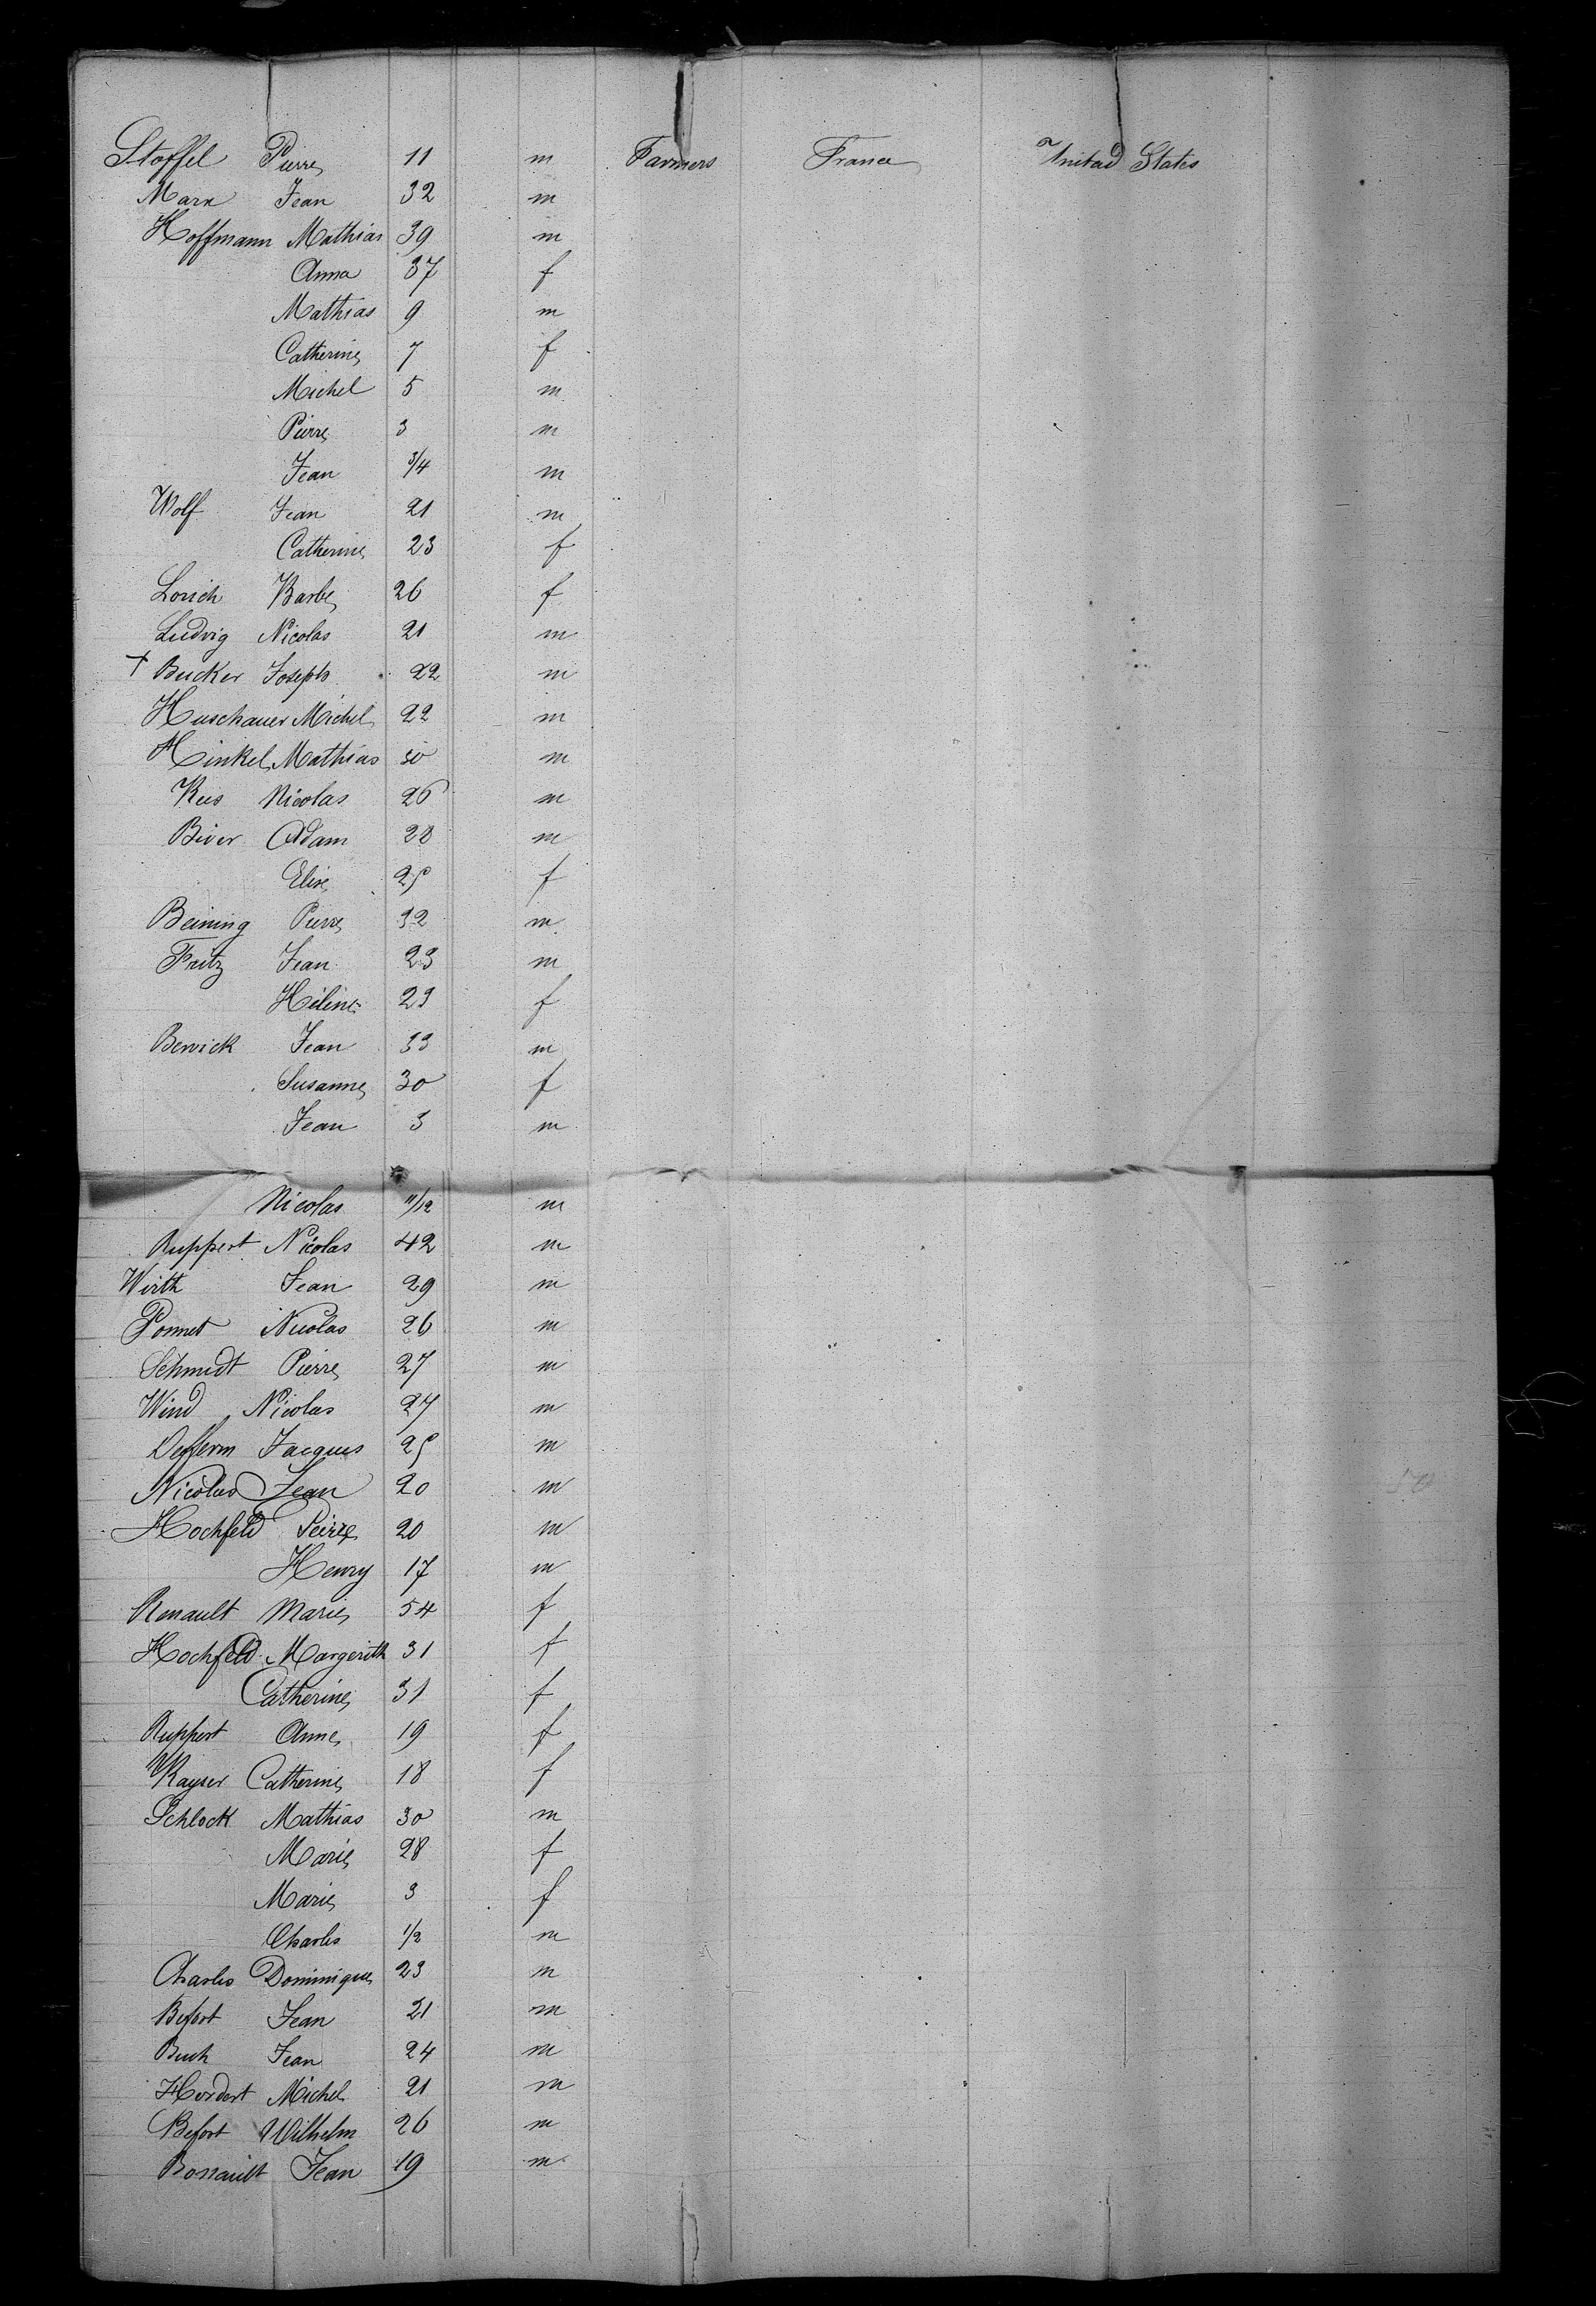 Stoffel Pierre 11 m Farmers France United States
Marx Jean 32 m
Hoffmann Mathias 39 m
Anna 37 f
Mathias 9 m
Catherine 7 f
Michel 5 m
Pierre 3 m
Jean 3/4 m
Wolf Jean 21 m
Catherine 23 f
Lorich Barbe 26 f
Ludvig Nicolas 21 m
+ Bucker Joseph 22 m
Huschauer Michel 22 m
Hinkel Mathias 30 m
Kus Nicolas 26 m
Biver Adam 28 m
Elise 25 f
Beining Pierre 32 m
Fritz Jean 23 m
Hélène 23 f
Bervick Jean 33 m
Susanne 30 f
Jean 3 m
Nicolas 11/12 m
Ruppert Nicolas 42 m
Wirth Jean 29 m
Pomet Nicolas 26 m
Schmidt Pierre 27 m
Wind Nicolas 27 m
Defferm Jacques 25 m
Nicolas Jean 20 m
Hochfeld Peirre 20 m
Henry 17 m
Renault Marie 54 f
Hochfeld Margerith 31 f
Catherine 31 f
Ruppert Anne 19 f
Kayser Catherine 18 f
Schlock Mathias 30 m
Marie 28 f
Marie 3 f
Charles 1/2 m
Charles Dominique 23 m
Befort Jean 21 m
Buch Jean 24 m
Herdert Michel 21 m
Befort Wilhelm 26 m
Bonault Jean 19 m